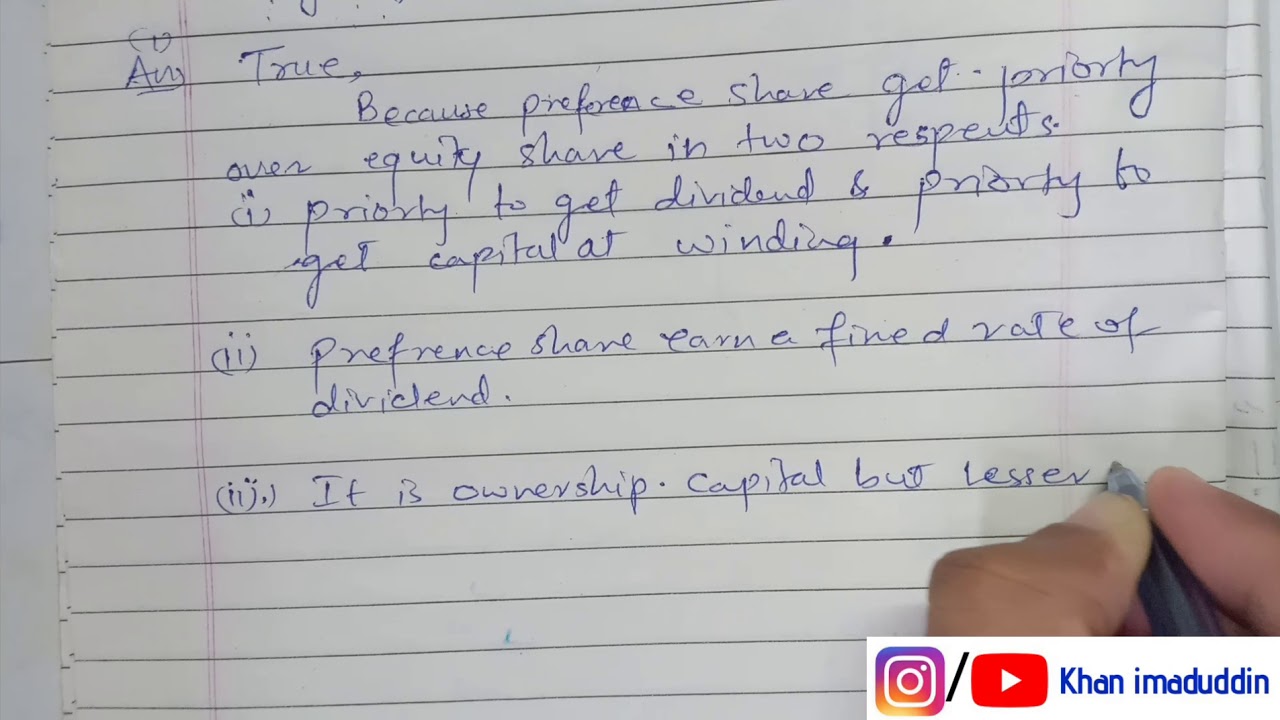 (1)
Ans True,
Because preference share get priorty
over equity share in two respeuts.
(i) priorty to get dividend & priorty to
get capital at winding.
(ii) Prefrence share earn a fined rate of
dividend.
(iii.) It is ownership. capital but lesser
Khan imaduddin